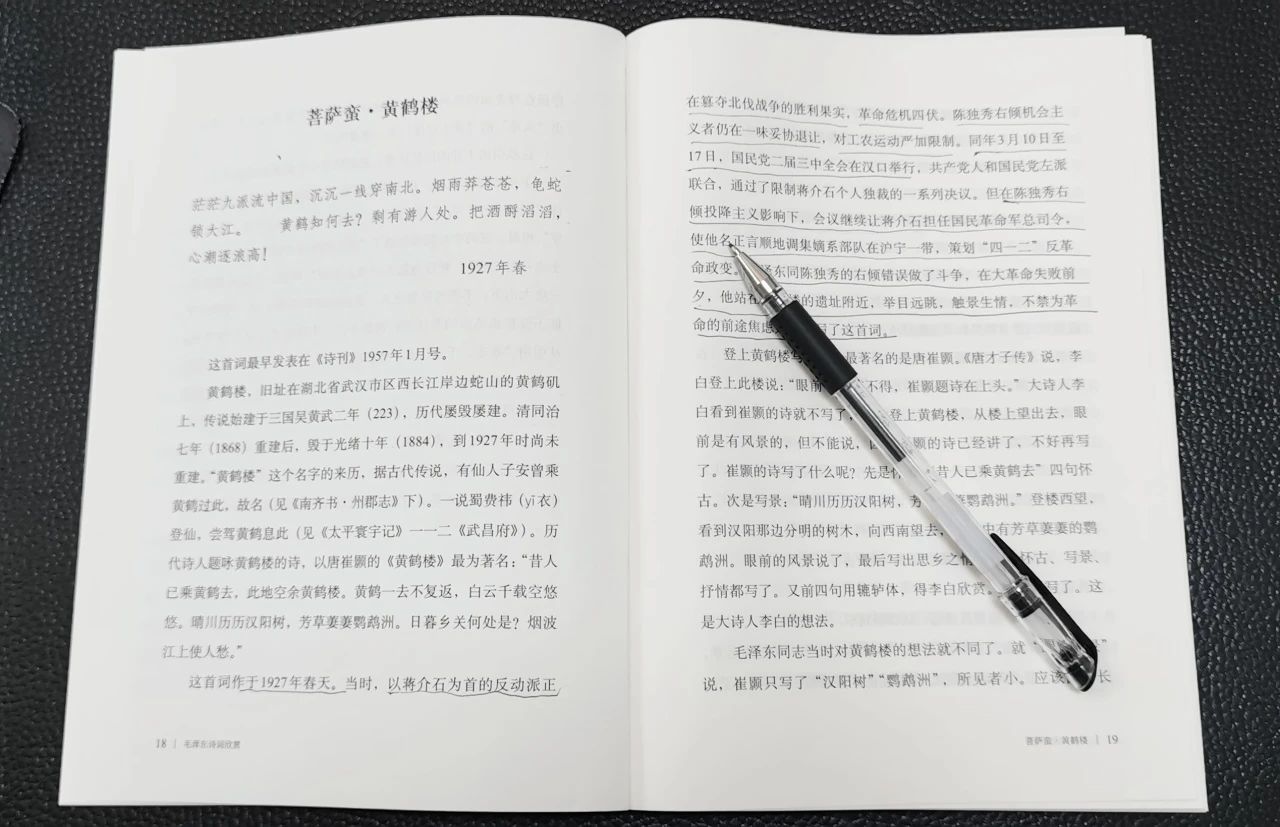 菩萨蛮·黄鹤楼
茫茫九派流中国，沉沉一线穿南北。烟雨莽苍苍，龟蛇
锁大江。 黄鹤知何去？剩有游人处。把酒酹滔滔，
心潮逐浪高！
1927年春
这首词最早发表在《诗刊》1957年1月号。
黄鹤楼，旧址在湖北省武汉市区西长江岸边蛇山的黄鹤矶
上，传说始建于三国吴黄武二年（223），历代屡毁屡建。清同治
七年（1868）重建后，毁于光绪十年（1884），到1927年时尚未
重建。“黄鹤楼”这个名字的来历，据古代传说，有仙人子安曾乘
黄鹤过此，故名（见《南齐书·州郡志》下）。一说蜀费袆（yī衣）
登仙，尝驾黄鹤息此（见《太平寰宇记》一一二《武昌府》）。历
代诗人题咏黄鹤楼的诗，以唐崔颢的《黄鹤楼》最为著名：“昔人
已乘黄鹤去，此地空余黄鹤楼。黄鹤一去不复返，白云千载空悠
悠。晴川历历汉阳树，芳草萋萋鹦鹉洲。日暮乡关何处是？烟波
江上使人愁。”
这首词作于1927年春天。当时，以蒋介石为首的反动派正
18 | 毛泽东诗词欣赏
在篡夺北伐战争的胜利果实，革命危机四伏。陈独秀右倾机会主
义者仍在一味妥协退让，对工农运动严加限制。同年3月10日至
17日，国民党二届三中全会在汉口举行，共产党人和国民党左派
联合，通过了限制蒋介石个人独裁的一系列决议。但在陈独秀右
倾投降主义影响下，会议继续让蒋介石担任国民革命军总司令，
使他名正言顺地调集嫡系部队在沪宁一带，策划“四一二”反革
命政变。泽东同陈独秀的右倾错误做了斗争，在大革命失败前
夕，他站在楼的遗址附近，举目远眺，触景生情，不禁为革
命的前途焦虑写了这首词。
登上黄鹤楼最著名的是唐崔颢。《唐才子传》说，李
白登上此楼说：“眼前不得，崔颢题诗在上头。”大诗人李
白看到崔颢的诗就不写了，登上黄鹤楼，从楼上望出去，眼
前是有风景的，但不能说，颢的诗已经讲了，不好再写
了。崔颢的诗写了什么呢？先是“昔人已乘黄鹤去”四句怀
古。次是写景：“晴川历历汉阳树，芳萋鹦鹉洲。”登楼西望，
看到汉阳那边分明的树木，向西南望去，中有芳草萋萋的鹦
鹉洲。眼前的风景说了，最后写出思乡之情怀古、写景、
抒情都写了。又前四句用辘轳体，得李白欣赏。写了。这
是大诗人李白的想法。
毛泽东同志当时对黄鹤楼的想法就不同了。就
说，崔颢只写了“汉阳树”“鹦鹉洲”，所见者小。应该长
菩萨蛮·黄鹤楼 | 19